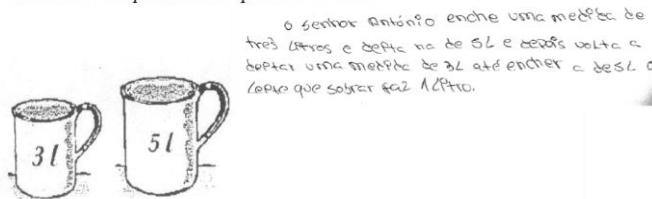 O senhor António enche uma medida de
três litros e deita na de 5L e depois volta a
deitar uma medida de 3L até encher a de 5L o
leite que sobrar faz 1 Litro.
3 l
5 l